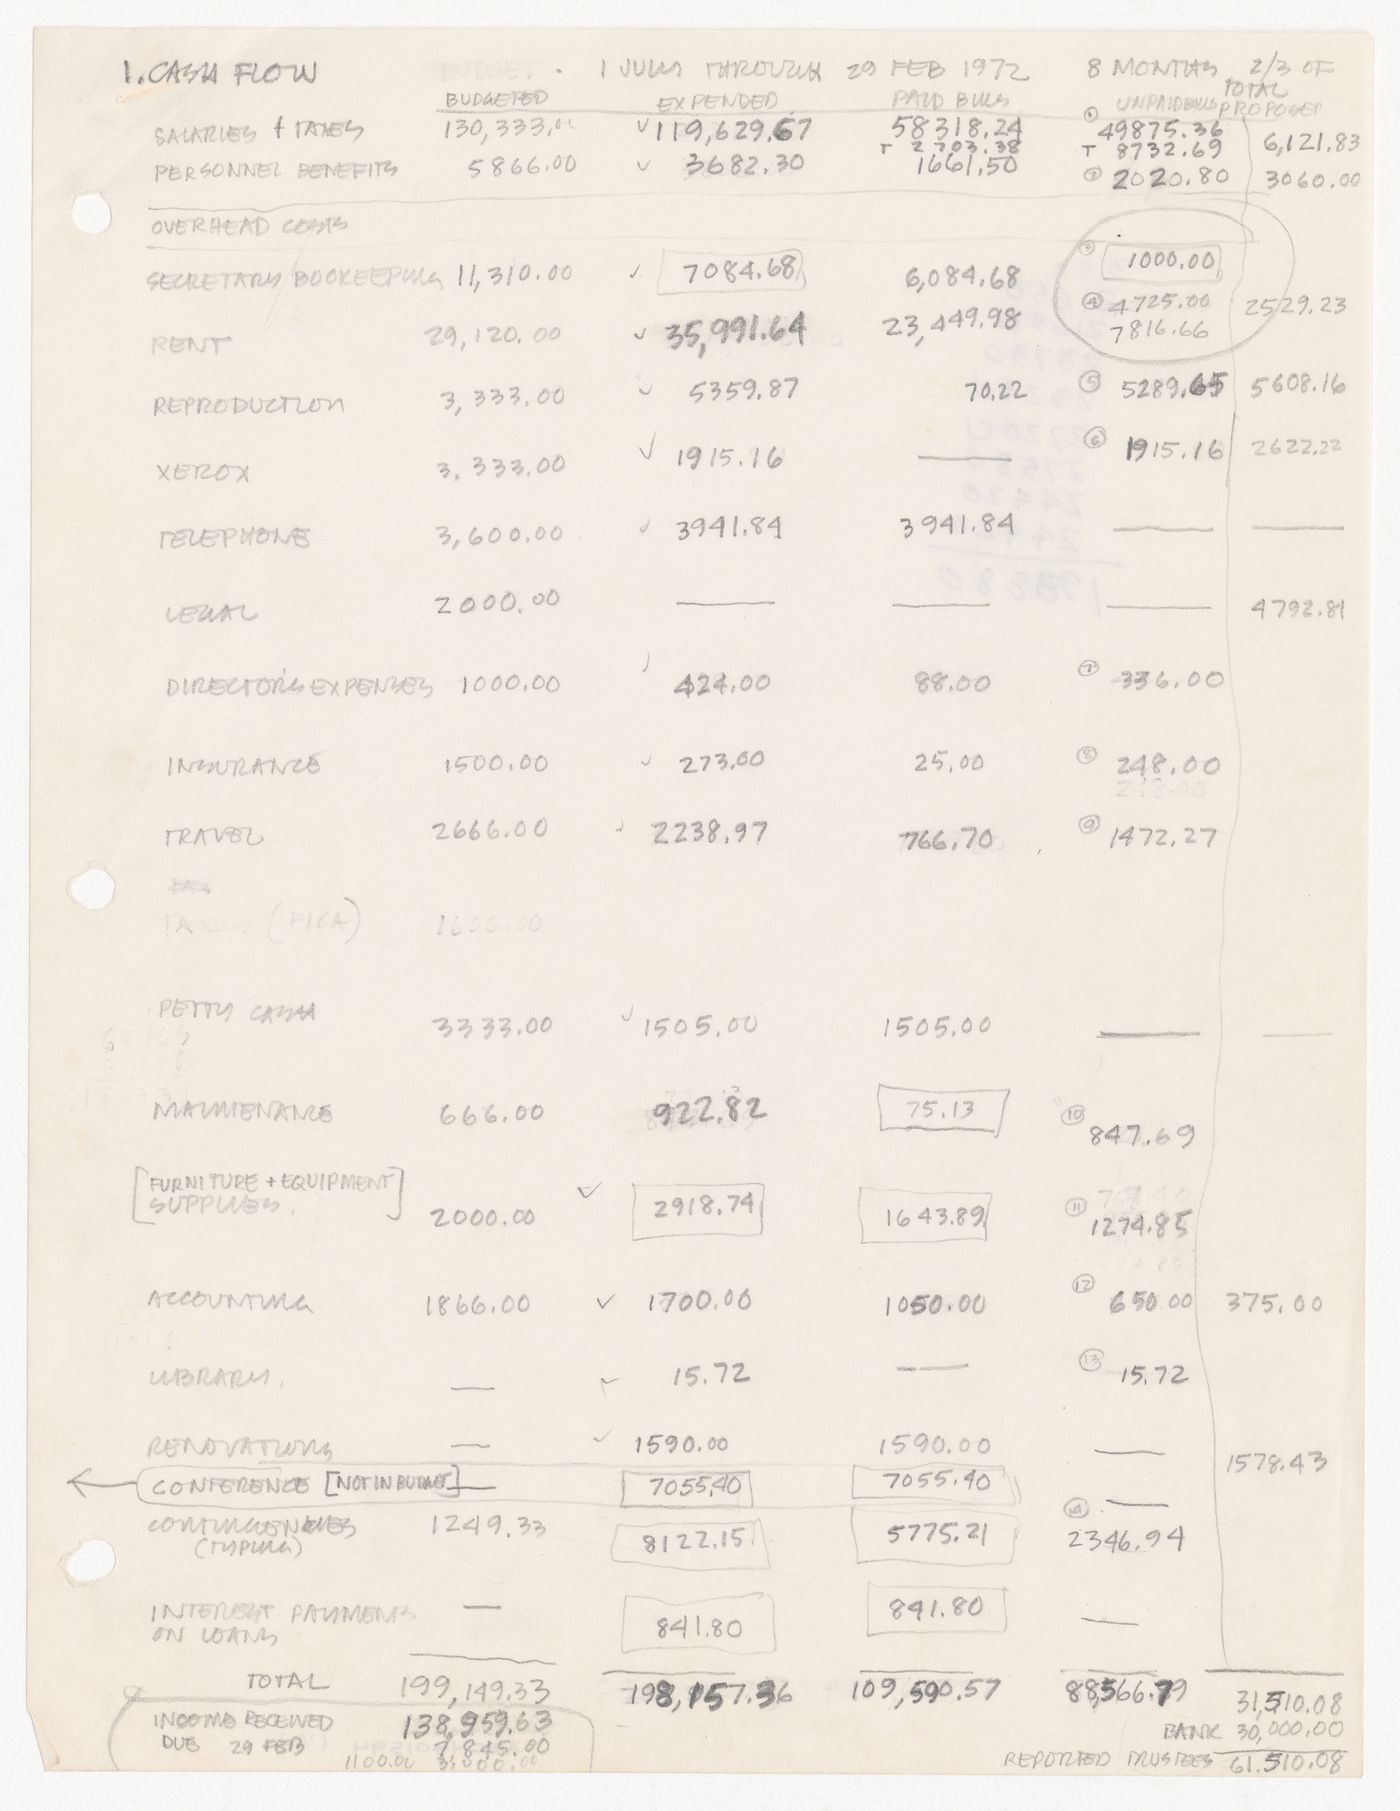 1. CASH FLOW BUDGET. 1 JULY THROUGH 29 FEB 1972 8 MONTHS 2/3 OF
BUDGETED EXPENDED PAID BILLS UNPAID BILLS TOTAL PROPOSED
SALARIES + TAXES 130,333.00 ✓ 119,629.67 58318.24 ① 49875.36 6,121.83
T 2703.38 T 8732.69
PERSONNEL BENEFITS 5866.00 ✓ 3682.30 1661.50 ② 2020.80 3060.00
OVERHEAD COSTS
SECRETARY/BOOKEEPING 11,310.00 ✓ 7084.68 6,084.68 ③ 1000.00
RENT 29,120.00 ✓ 35,991.64 23,449.98 ④ 4725.00 2529.23
7816.66
REPRODUCTION 3,333.00 ✓ 5359.87 70.22 ⑤ 5289.65 5608.16
XEROX 3,333.00 ✓ 1915.16 — ⑥ 1915.16 2622.22
TELEPHONE 3,600.00 ✓ 3941.84 3941.84 — —
LEGAL 2000.00 — — — 4792.81
DIRECTOR'S EXPENSES 1000.00 424.00 88.00 ⑦ 336.00
INSURANCE 1500.00 ✓ 273.00 25.00 ⑧ 248.00
248.00
TRAVEL 2666.00 ✓ 2238.97 766.70 ⑨ 1472.27
TAXES (FICA) 1600.00
PETTY CASH 3333.00 ✓ 1505.00 1505.00 — —
MAINTENANCE 666.00 922.82 75.13 ⑩ 847.69
[FURNITURE + EQUIPMENT]
SUPPLIES. 2000.00 ✓ 2918.74 1643.89 ⑪ 1274.85
ACCOUNTING 1866.00 ✓ 1700.00 1050.00 ⑫ 650.00 375.00
LIBRARY. — ✓ 15.72 — ⑬ 15.72
RENOVATIONS — ✓ 1590.00 1590.00 — 1578.43
CONFERENCE [NOT IN BUDGET] — 7055.40 7055.40 —
CONTINGENCIES 1249.33 8122.15 5775.21 ⑭ 2346.94
(TYPING)
INTEREST PAYMENTS — 841.80 841.80 —
ON LOANS
TOTAL 199,149.33 198,157.36 109,590.57 88,566.79 31,510.08
INCOME RECEIVED 138,959.63 BANK 30,000.00
DUE 29 FEB 7,845.00 REPORTED TRUSTEES 61,510.08
1100.00 3,000.00